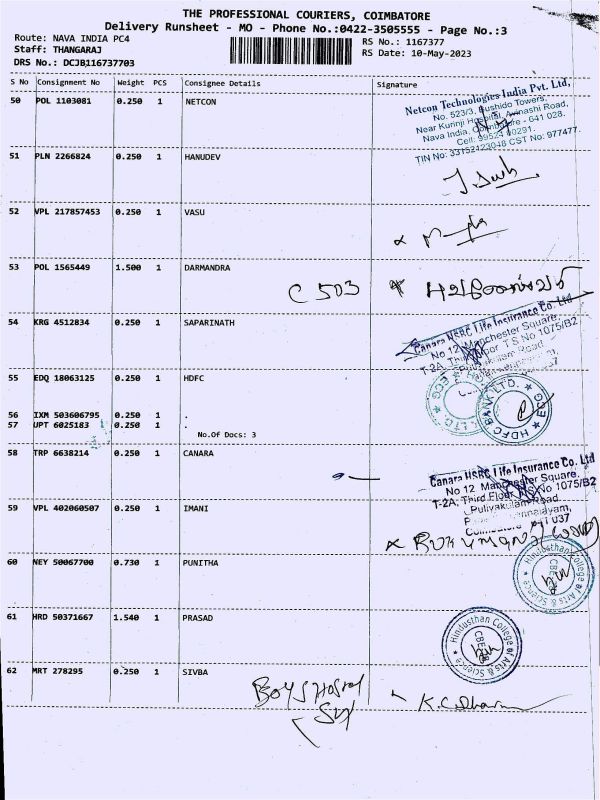 THE PROFESSIONAL COURIERS, COIMBATORE
Delivery Runsheet - MO - Phone No.:0422-3505555 - Page No.:3
Route: NAVA INDIA PC4 RS No.: 1167377
Staff: THANGARAJ RS Date: 10-May-2023
DRS No.: DCJB116737703
S No Consignment No Weight PCS Consignee Details Signature
50 POL 1103081 0.250 1 NETCON
Netcon Technologies India Pvt. Ltd,
No. 523/3, Bushido Towers,
Near Kurinji Hospital, Avinashi Road,
Nava India, Coimbatore - 641 028.
Cell: 99524 00291.
TIN No: 33152123048 CST No: 977477.
51 PLN 2266824 0.250 1 HANUDEV
52 VPL 217857453 0.250 1 VASU
53 POL 1565449 1.500 1 DARMANDRA
C 503
54 KRG 4512834 0.250 1 SAPARINATH
Canara HSBC Life Insurance Co. Ltd
No 12, Manchester Square,
T-2A, Third Floor T S No 1075/B2
Puliyakulam Road
55 EDQ 18063125 0.250 1 HDFC
HDFC BANK LTD.
56 IXM 503606795 0.250 1 .
57 UPT 6025183 0.250 1 .
No.Of Docs: 3
58 TRP 6638214 0.250 1 CANARA
Canara HSBC Life Insurance Co. Ltd
No 12 Manchester Square,
T-2A, Third Floor, T S No 1075/B2
Puliyakulam Road
59 VPL 402060507 0.250 1 IMANI
60 NEY 50067700 0.730 1 PUNITHA
Hindusthan College of Arts & Science
61 HRD 50371667 1.540 1 PRASAD
Hindusthan College of Arts & Science
62 MRT 278295 0.250 1 SIVBA
Boys Hostel